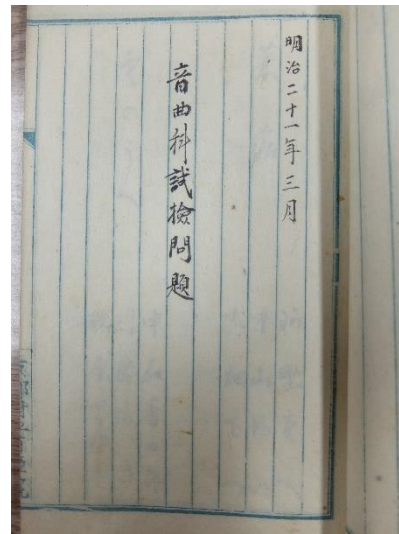 明治二十一年三月
音曲科試驗問題